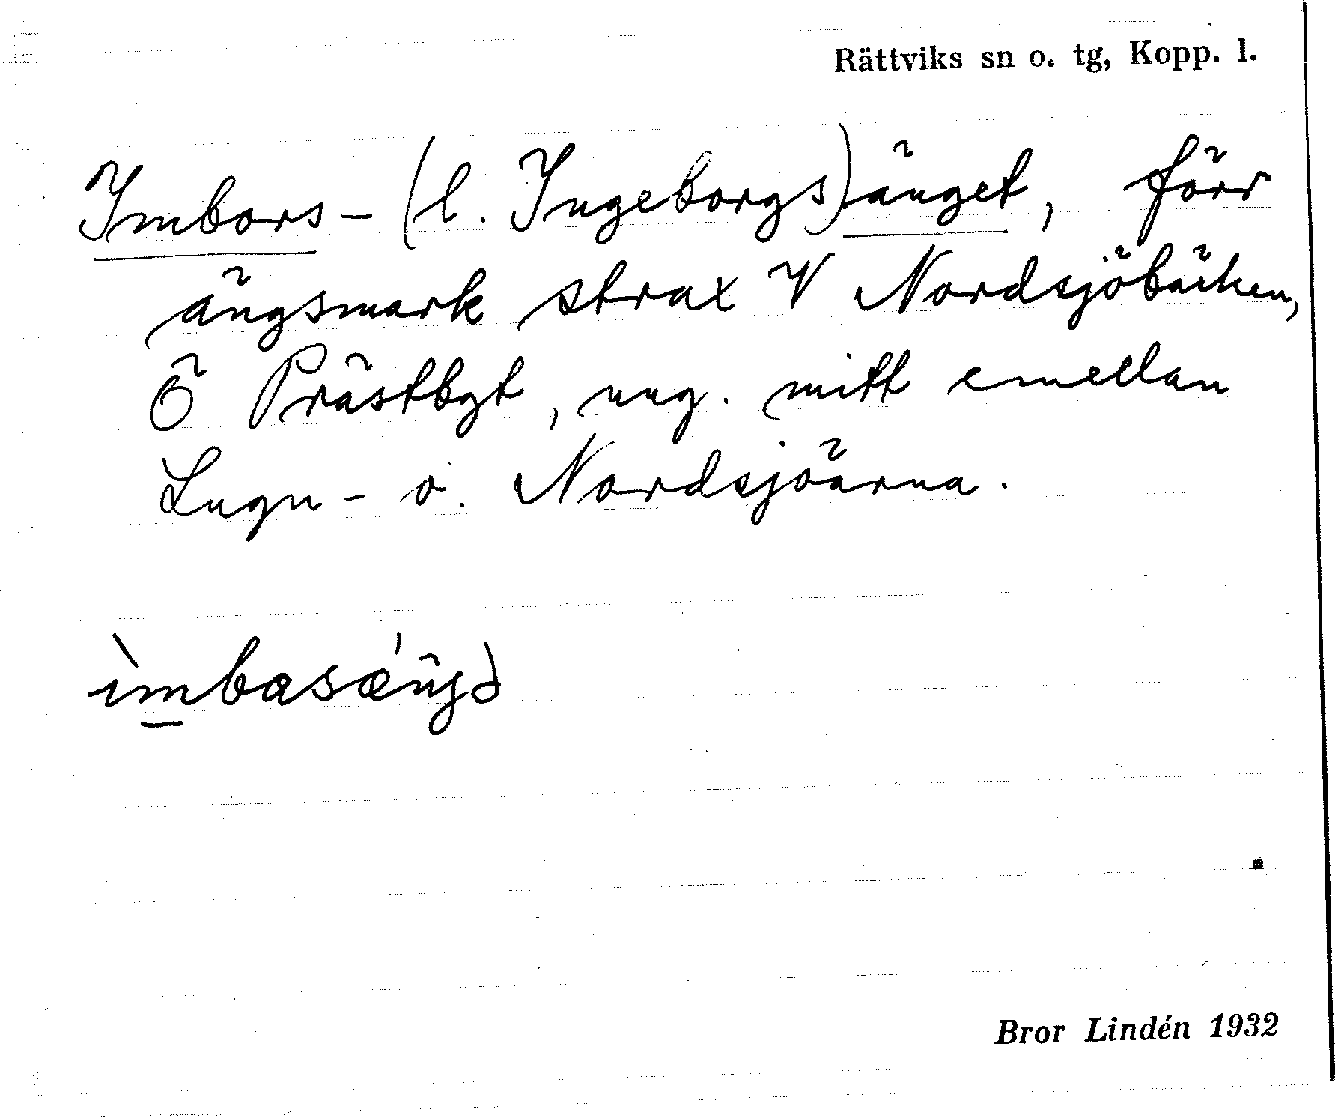 Rättviks sn o. tg, Kopp. l.
Imbors- (l. Ingeborgs)änget, förr
ängsmark strax V Nordsjöbäcken,
Ö Prästbyt, ung. mitt emellan
Lugn- o. Nordsjöarna.
Bror Lindén 1932